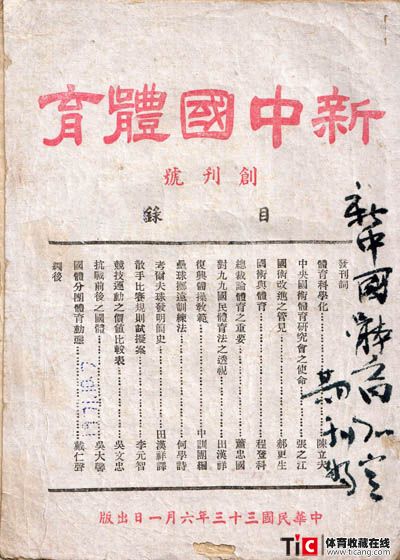 新中國體育
創刊號
目錄
發刊詞
體育科學化……陳立夫
中央國術體育研究會之使命……張之江
國術改進之管見……郝更生
國術與體育……程登科
總裁論體育之重要……蕭忠國
對九九國民體育法之透視……田漢祥
復興體操教範……中訓團編
壘球擲遠訓練法……何學詩
考爾夫球發明簡史……田漢祥譯
散手比賽規則試擬案……李元智
競技運動之價值比較表……吳文忠
抗戰前後之國體……吳大馨
國體分團體育動態……戴仁聲
編後
新中國體育
中華民國三十三年六月一日出版
TiC 体育收藏在线
www.ticang.com